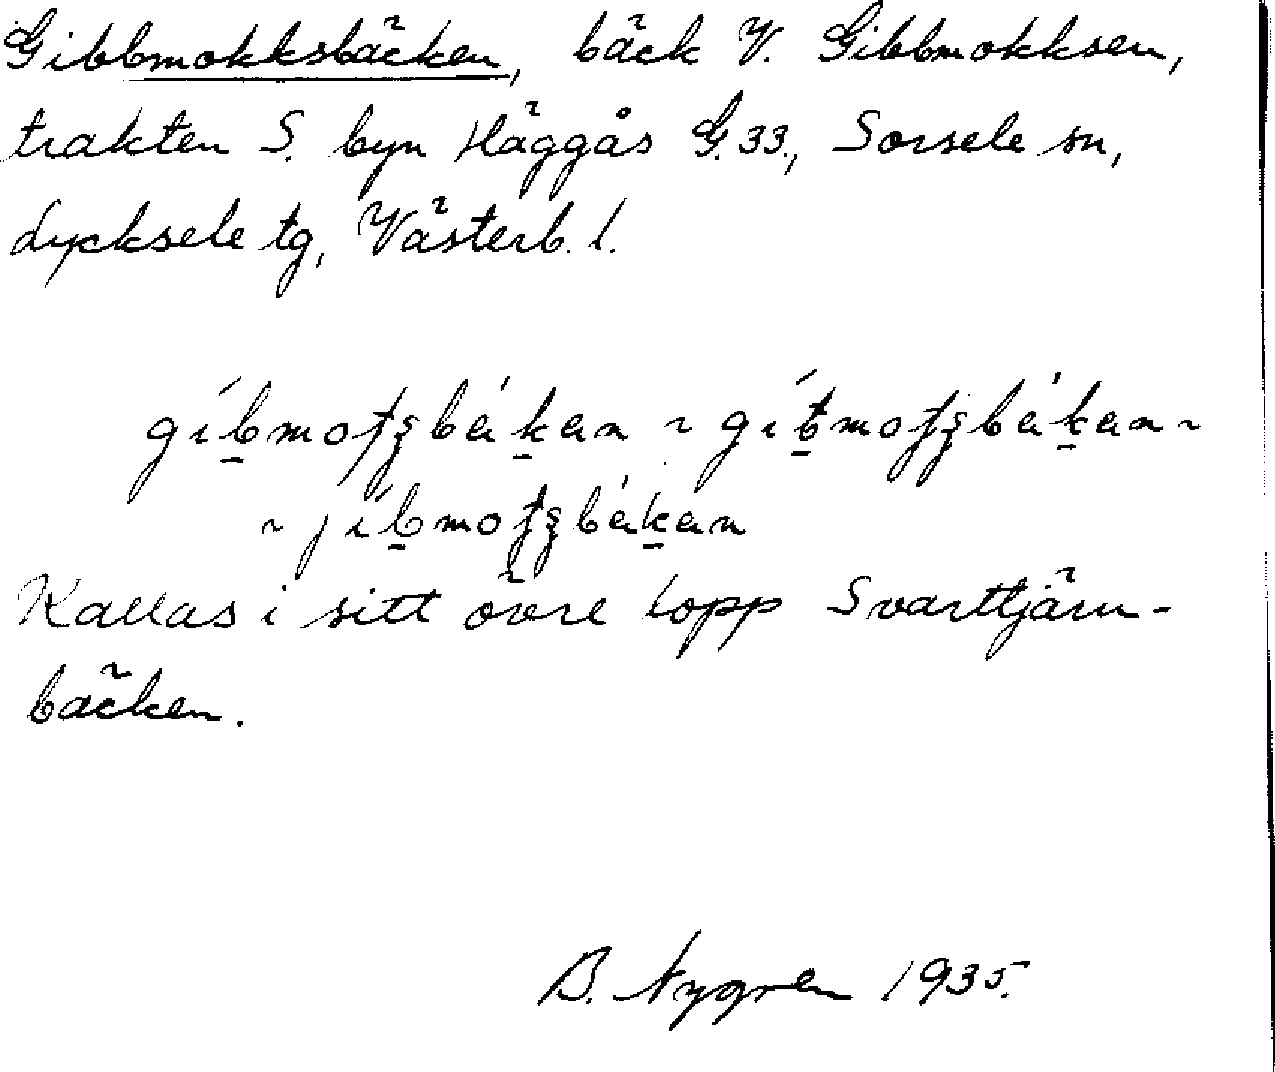 Gibbmokksbäcken, bäck V. Gibbmokksen,
trakten S. byn Häggås G. 33., Sorsele sn,
Lycksele tg, Västerb. l.
Kallas i sitt övre lopp Svarttjärn-
bäcken.
B. Nygren 1935.